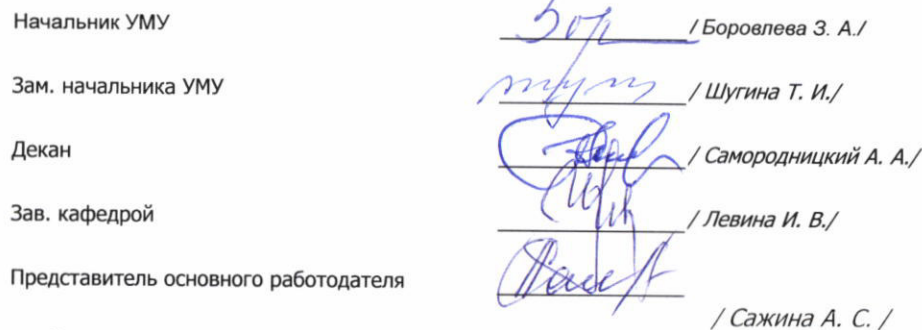 Начальник УМУ / Боровлева З. А./
Зам. начальника УМУ / Шугина Т. И./
Декан / Самородницкий А. А./
Зав. кафедрой / Левина И. В./
Представитель основного работодателя
/ Сажина А. С. /